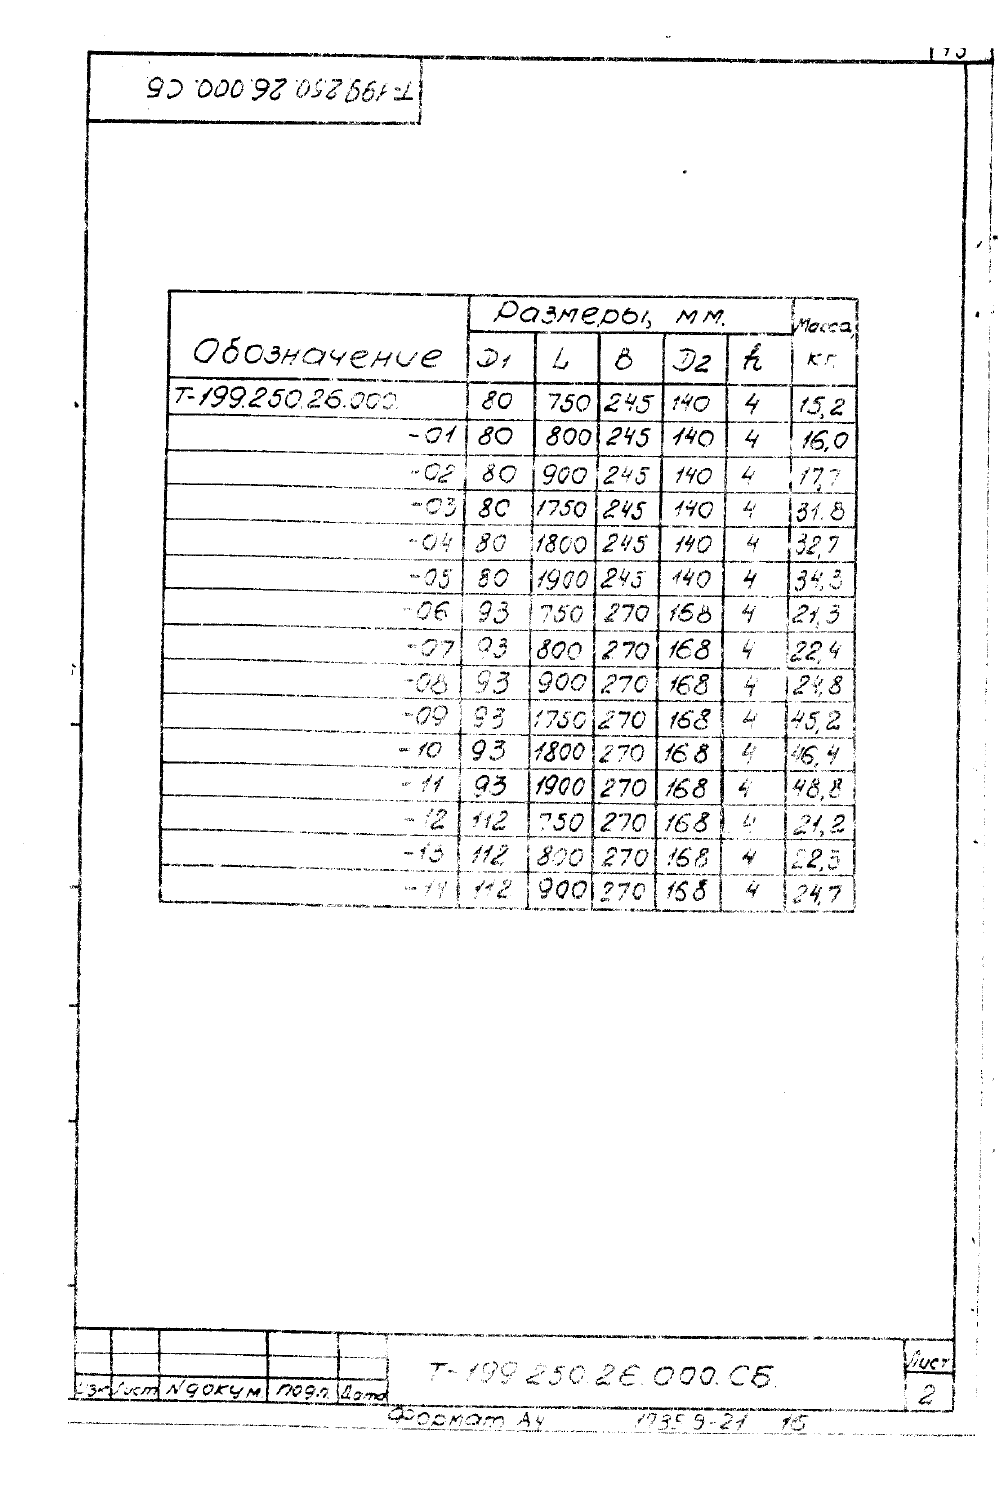 Т-199.250.26.000.СБ
Обозначение Размеры, мм. Масса, кг.
D1 L B D2 h
Т-199.250.26.000. 80 750 245 140 4 15,2
-01 80 800 245 140 4 16,0
-02 80 900 245 140 4 17,7
-03 80 1750 245 140 4 31.8
-04 80 1800 245 140 4 32,7
-05 80 1900 245 140 4 34,3
-06 93 750 270 168 4 21,3
-07 93 800 270 168 4 22,4
-08 93 900 270 168 4 24,8
-09 93 1750 270 168 4 45,2
-10 93 1800 270 168 4 46,4
-11 93 1900 270 168 4 48,8
-12 112 750 270 168 4 21,2
-13 112 800 270 168 4 22,3
-14 112 900 270 168 4 24,7
Т-199.250.26.000.СБ. Лист
Изм Лист N докум. подп. Дата 2
Формат А4 15